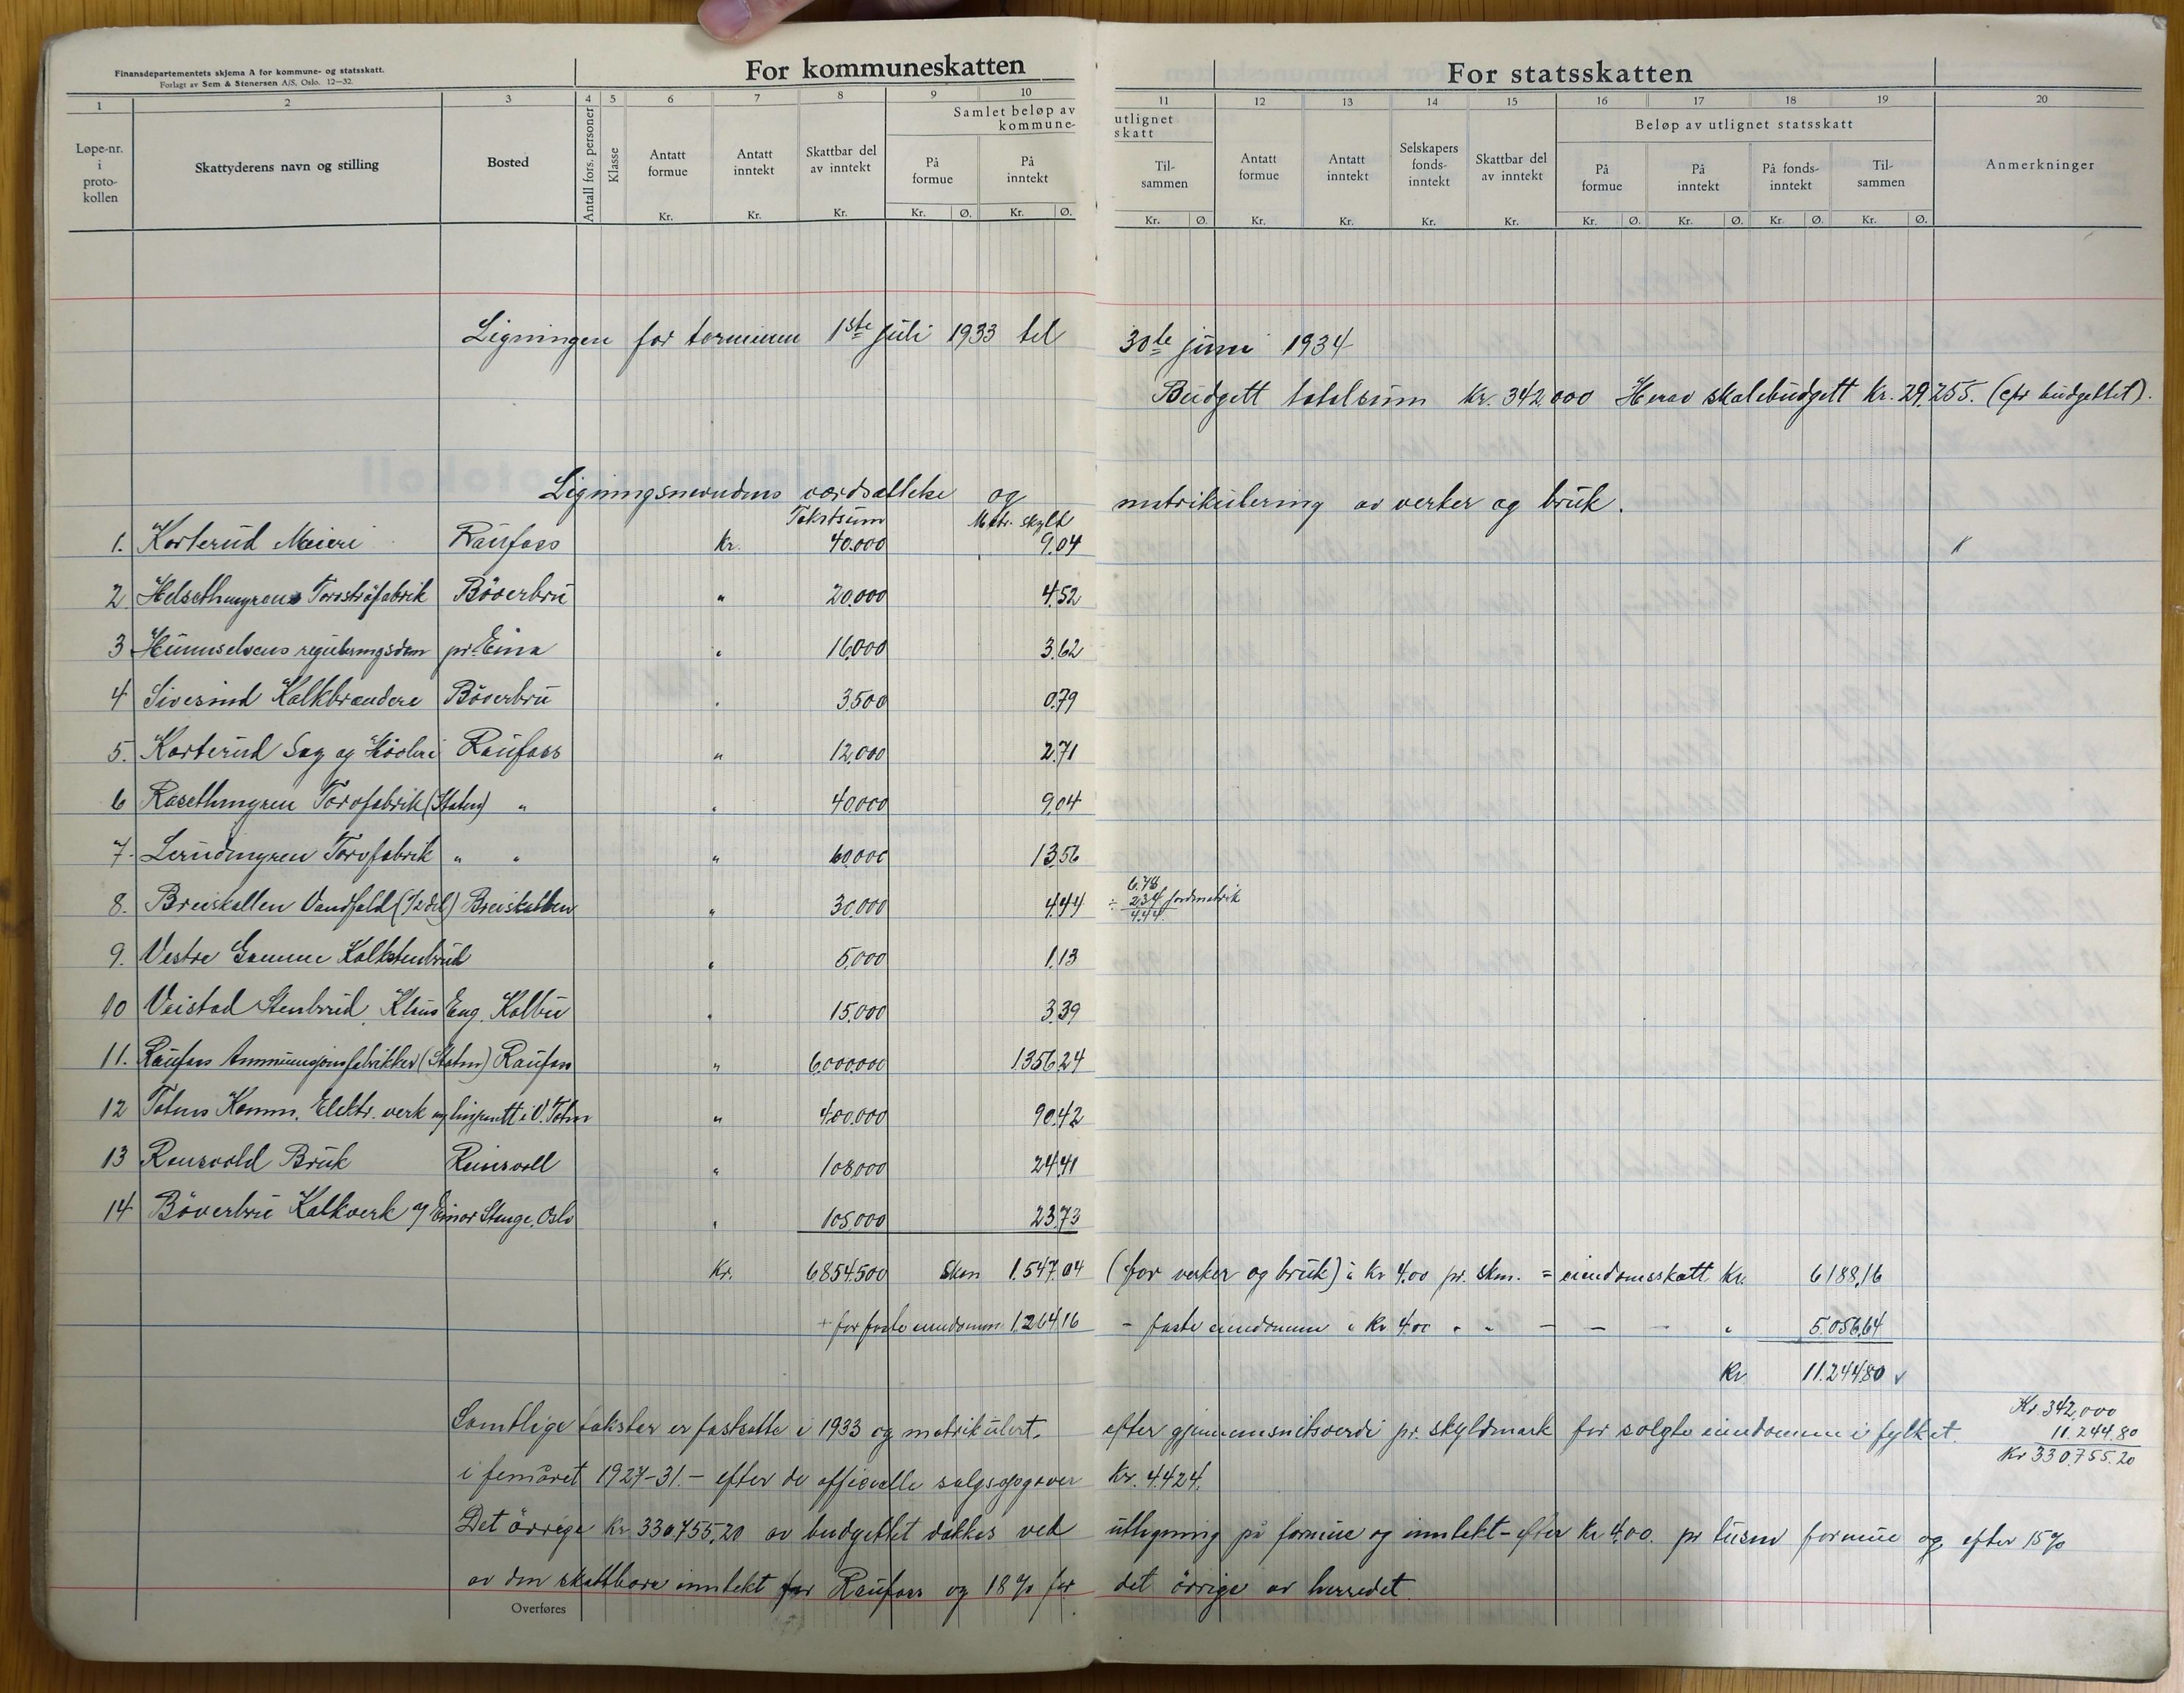 Finansdepartementets skjema A for kommune- og statsskatt.
Forlagt av Sem & Stenersen A/S, Oslo. 12—32.
For kommuneskatten
For statsskatten
1 2 3 4 5 6 7 8 9 10 11 12 13 14 15 16 17 18 19 20
Løpe-nr. i proto-kollen
Skattyderens navn og stilling
Bosted
Antall fors. personer
Klasse
Antatt formue Kr.
Antatt inntekt Kr.
Skattbar del av inntekt Kr.
Samlet beløp av kommune-
På formue Kr. Ø.
På inntekt Kr. Ø.
utlignet skatt
Til-sammen Kr. Ø.
Antatt formue Kr.
Antatt inntekt Kr.
Selskapers fonds-inntekt Kr.
Skattbar del av inntekt Kr.
Beløp av utlignet statsskatt
På formue Kr. Ø.
På inntekt Kr. Ø.
På fonds-inntekt Kr. Ø.
Til-sammen Kr. Ø.
Anmerkninger
Ligningen for terminen 1ste juli 1933 til 30te juni 1934
Budgett totalsum Kr. 342,000 Herav skolebudgett Kr. 29,255. (cfr budgettet).
Ligningsnevndens verdsettelse og matrikulering av verker og bruk.
Takstsum Matr. skyld
1. Korterud Meieri Raufoss Kr. 40.000 9.04
2 Helsethmyrens Torvströfabrik Böverbru " 20.000 4.52
3 Hunnselvens reguleringsdam pr. Eina " 16.000 3.62
4 Sivesind Kalkbrænderi Böverbru " 3.500 0.79
5. Korterud Sag og Høvleri Raufoss " 12.000 2.71
6 Rosethmyren Torvfabrik (Staten) " " 40.000 9.04
7. Lerudmyren Torvfabrik " " " 60.000 13.56
8. Breiskallen Vandfald (1/2 del) Breiskallen " 30.000 4.44
6.78
÷ 2.34 jordmatrik
4.44
9. Vestre Gaume Kalkstenbrud " 5.000 1.13
10 Veistad Stenbrud, Klaus Eng. Kolbu " 15.000 3.39
11. Raufoss Ammunisjonsfabrikker (Staten) Raufoss " 6.000.000 1356.24
12 Totens Komm. Elektr. verk og linjenett i V. Toten " 400.000 90.42
13 Reinsvold Bruk Reinsvoll " 108,000 24.41
14 Böverbru Kalkverk v/ Einar Stange, Oslo " 105,000 23.73
Kr. 6.854.500 Skm 1.547.04 (for verker og bruk) à Kr 4.00 pr. skm. = eiendomsskatt Kr. 6188,16
+ for faste eiendomm. 1.264.16 - faste eiendomme à Kr 4.00 " " — — — " 5.056,64
Kr. 11.244.80 v
Kr. 342,000
11.244.80
Kr 330.755.20
Samtlige takster er fastsatte i 1933 og matrikulert efter gjennemsnitsverdi pr. skyldmark for solgte eiendomme i fylket.
i femåret 1927-31. - efter de officielle salgsopgaver Kr. 4424.
Det övrige Kr 330.755,20 av budgettet dekkes ved utligning på formue og inntekt - efter Kr 4.00. pr tusen formue og efter 15 %
av den skattbare inntekt for Raufoss og 18 % for det övrige av herredet.
Overføres